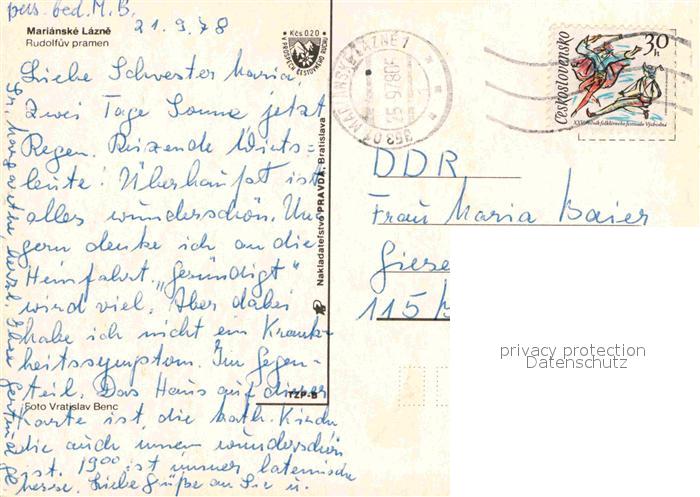 pers. bed. M. B.
21.9.78
Mariánské Lázně
Rudolfův pramen
Liebe Schwester Maria,
Zwei Tage Sonne jetzt
Regen. Reizende Wirts=
leute! Überhaupt ist
alles wunderschön. Un
gern denke ich an die
Heimfahrt. „Gesündigt"
wird viel. Aber dabei
habe ich nicht ein Krank=
heitssymptom. Im Gegen-
teil. Das Haus auf dieser
Foto Vratislav Benc
Karte ist die kath. Kirche
die auch innen wunderschön
ist. 19⁰⁰ ist immer lateinische
Messe. Liebe Grüße an Sie u.
Sr. Margarethe, herzl. Ihre Gertrud
Kčs 0.20
V PROSPĚCH CESTOVNÍHO RUCHU
Nakladatelství PRAVDA, Bratislava
TZP-B
353 01 MARIÁNSKÉ LÁZNĚ 1
Československo
30h
DDR
Frau Maria Baier
Giese
115
privacy protection
Datenschutz